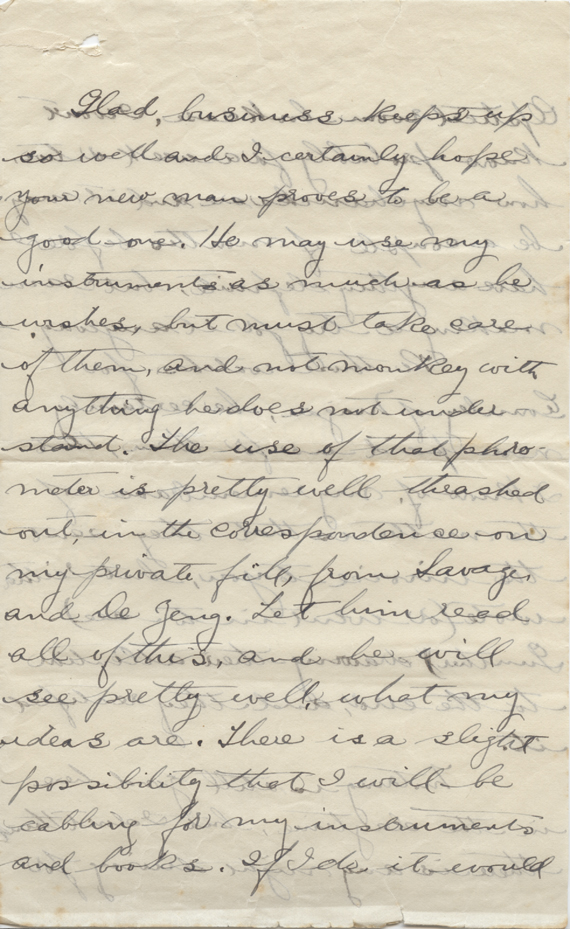 Glad, business keeps up
so well and I certainly hope
your new man proves to be a
good one. He may use my
instruments as much as he
wishes, but must take care
of them, and not monkey with
anything he does not under
stand. The use of that phro-
meter is pretty well theashed
out, in the correspondence on
my private fill, from Savage,
and De Zeng. Let him read
all of this, and he will
see pretty well, what my
ideas are. There is a slight
possibility that I will be
cabling for my instruments
and books. If I do it would